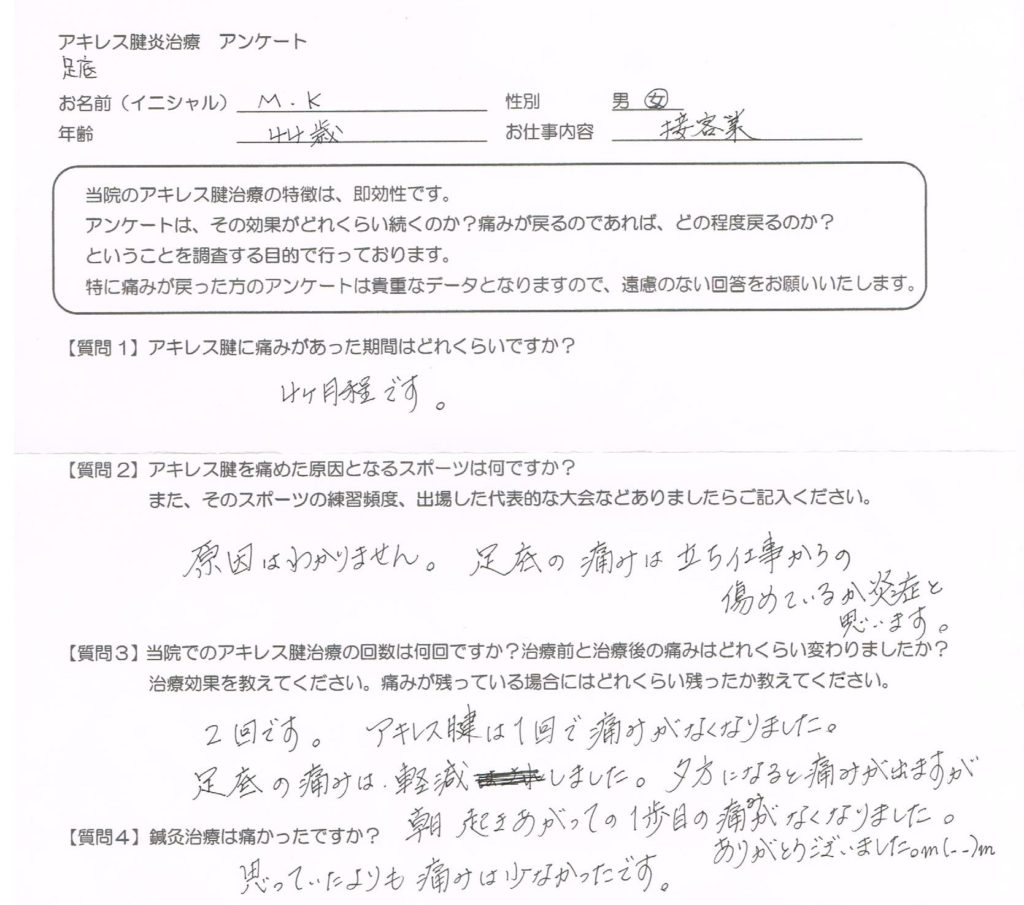 アキレス腱炎治療 アンケート
足底
お名前（イニシャル） M.K 性別 男 女
年齢 44歳 お仕事内容 接客業
当院のアキレス腱治療の特徴は、即効性です。
アンケートは、その効果がどれくらい続くのか？痛みが戻るのであれば、どの程度戻るのか？
ということを調査する目的で行っております。
特に痛みが戻った方のアンケートは貴重なデータとなりますので、遠慮のない回答をお願いいたします。
【質問1】アキレス腱に痛みがあった期間はどれくらいですか？
4ヶ月程です。
【質問2】アキレス腱を痛めた原因となるスポーツは何ですか？
また、そのスポーツの練習頻度、出場した代表的な大会などありましたらご記入ください。
原因はわかりません。 足底の痛みは立ち仕事からの
傷めているか炎症と
思います。
【質問3】当院でのアキレス腱治療の回数は何回ですか？治療前と治療後の痛みはどれくらい変わりましたか？
治療効果を教えてください。痛みが残っている場合にはどれくらい残ったか教えてください。
2回です。 アキレス腱は1回で痛みがなくなりました。
足底の痛みは、軽減しました。夕方になると痛みが出ますが
朝 起きあがっての1歩目の痛みがなくなりました。
ありがとうございました。m(--)m
【質問4】鍼灸治療は痛かったですか？
思っていたよりも痛みは少なかったです。